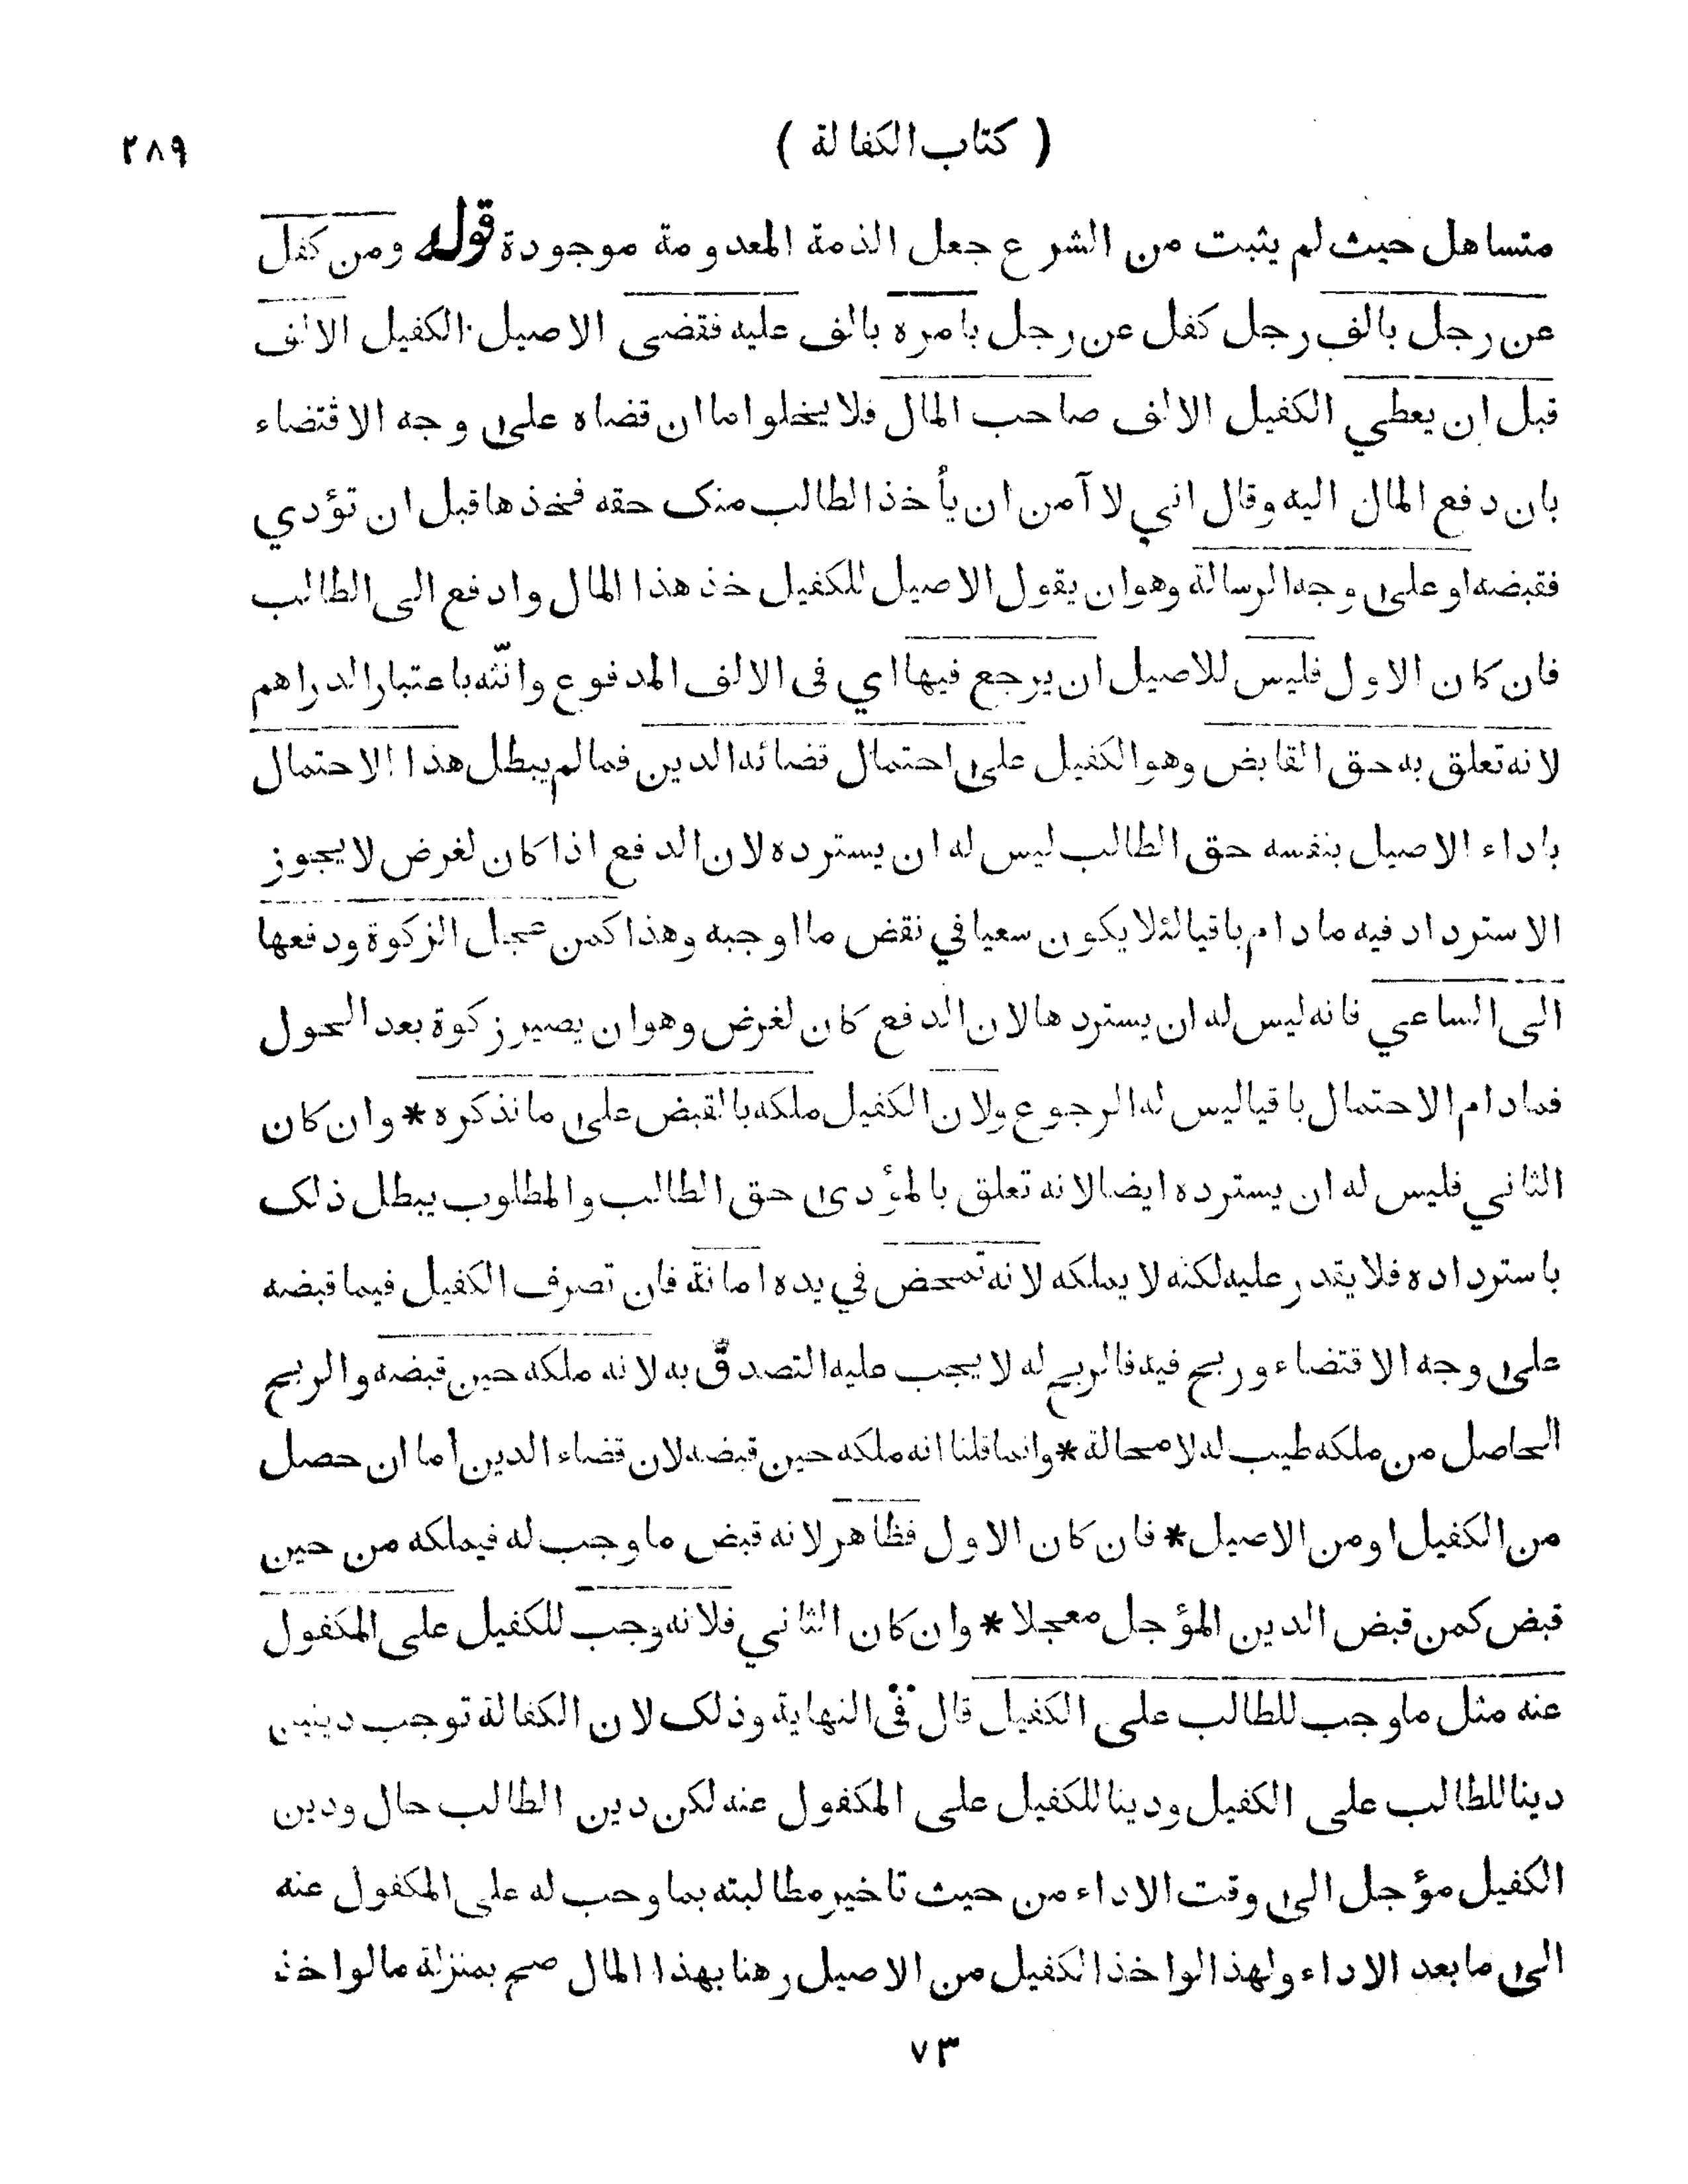 ( كتاب الكفالة ) ٢٨٩
متساهل حيث لم يثبت من الشرع جعل الذمة المعدومة موجودة قوله ومن كفل
عن رجل بالف رجل كفل عن رجل بامره بالف عليه فقضى الاصيل الكفيل الالف
قبل ان يعطي الكفيل الالف صاحب المال فلا يخلوا اما ان قضاه على وجه الاقتضاء
بان دفع المال اليه وقال اني لا آمن ان يأخذ الطالب منك حقه فخذها قبل ان تؤدي
فقبضه او على وجه الرسالة وهو ان يقول الاصيل للكفيل خذ هذا المال وادفع الى الطالب
فان كان الاول فليس للاصيل ان يرجع فيها اي فى الالف المدفوع وانثه باعتبار الدراهم
لانه تعلق به حق القابض وهو الكفيل على احتمال قضائه الدين فمالم يبطل هذا الاحتمال
باداء الاصيل بنفسه حق الطالب ليس له ان يسترده لان الدفع اذا كان لغرض لا يجوز
الاسترداد فيه ما دام باقيا لئلا يكون سعيا في نقض ما اوجبه وهذا كمن عجل الزكوة ودفعها
الى الساعي فانه ليس له ان يستردها لان الدفع كان لغرض وهو ان يصير زكوة بعد الحول
فمادام الاحتمال باقيا ليس له الرجوع ولان الكفيل ملكه بالقبض على ما نذكره * وان كان
الثاني فليس له ان يسترده ايضا لانه تعلق بالمؤدى حق الطالب والمطلوب يبطل ذلك
باسترداده فلا يقدر عليه لكنه لا يملكه لانه تمحض في يده امانة فان تصرف الكفيل فيما قبضه
على وجه الاقتضاء وربح فيه فالربح له لا يجب عليه التصدق به لانه ملكه حين قبضه والربح
الحاصل من ملكه طيب له لا محالة * وانما قلنا انه ملكه حين قبضه لان قضاء الدين اما ان حصل
من الكفيل او من الاصيل * فان كان الاول فظاهر لانه قبض ما وجب له فيملكه من حين
قبض كمن قبض الدين المؤجل معجلا * وان كان الثاني فلانه وجب للكفيل على المكفول
عنه مثل ماوجب للطالب على الكفيل قال فى النهاية وذلك لان الكفالة توجب دينين
دينا للطالب على الكفيل ودينا للكفيل على المكفول عنه لكن دين الطالب حال ودين
الكفيل مؤجل الى وقت الاداء من حيث تاخير مطالبته بما وجب له على المكفول عنه
الى ما بعد الاداء ولهذا لواخذ الكفيل من الاصيل رهنا بهذا المال صح بمنزلة مالواخذ
٧٣